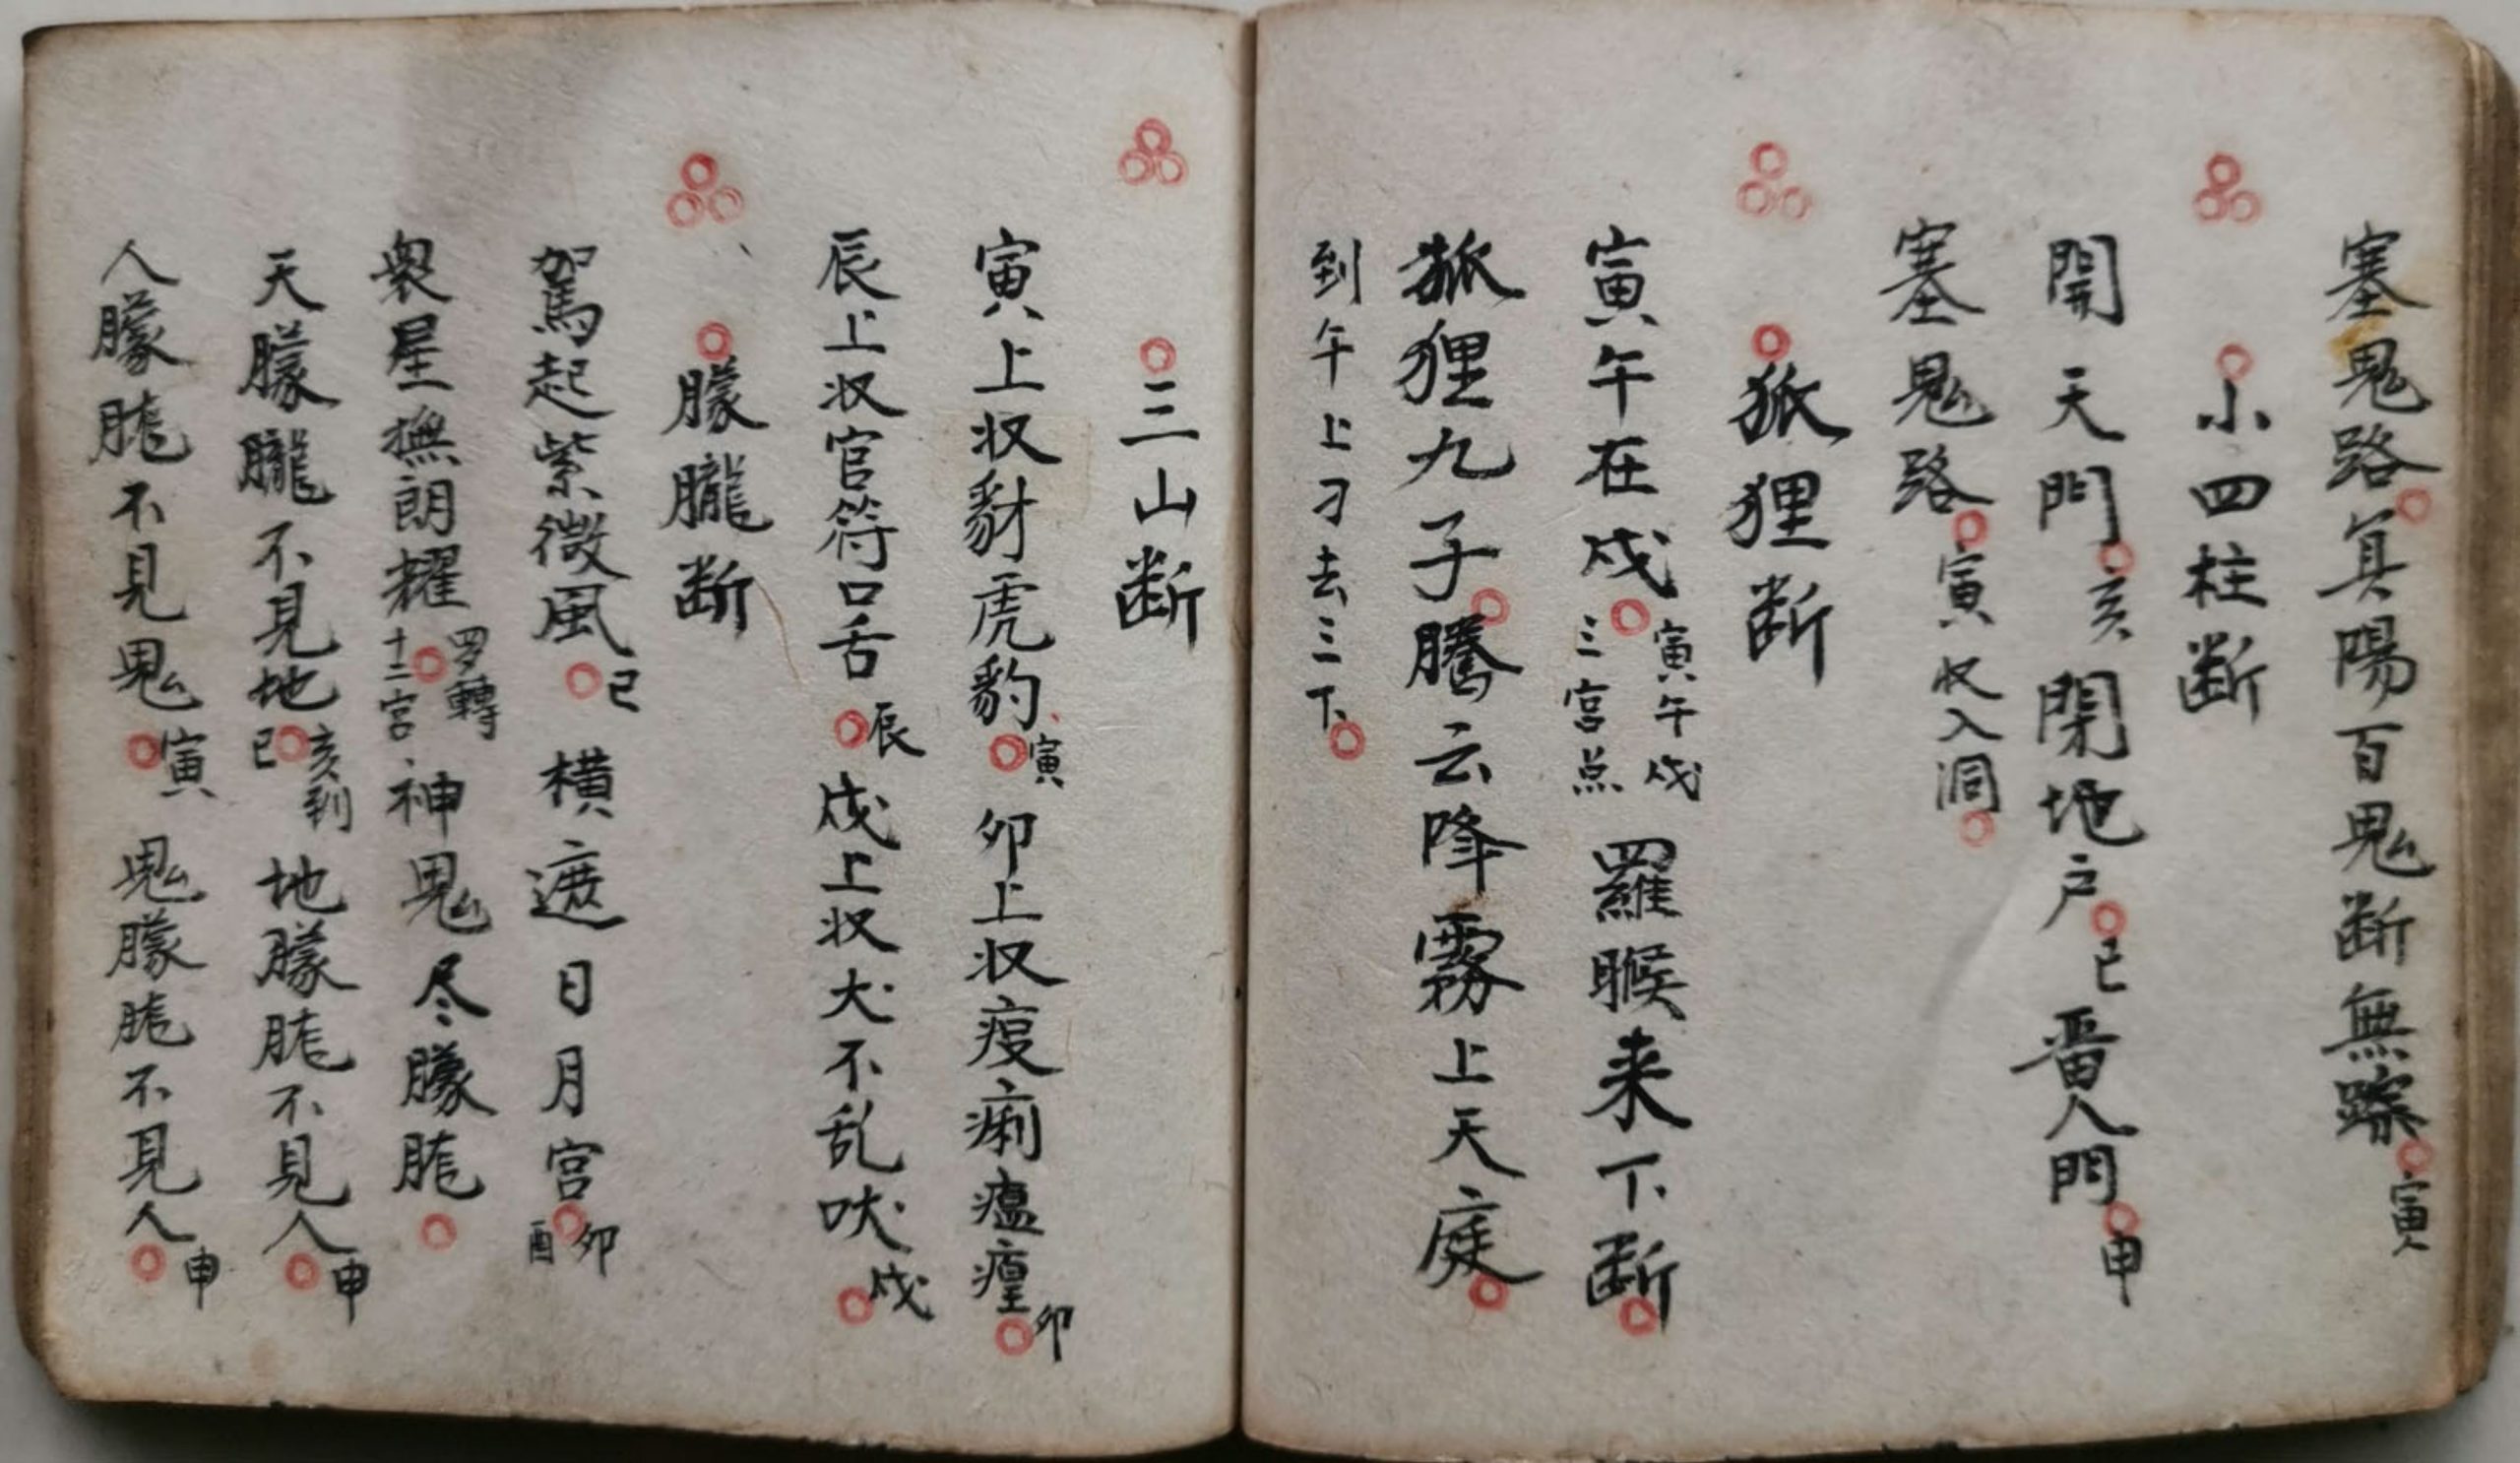 塞鬼路冥陽百鬼断無踪寅
小四柱断
開天門亥閉地户巳番人門申
塞鬼路寅收入洞
狐狸断
寅午在戌寅午戌三宫点羅睺来下断
狐狸九子騰云降霧上天庭
到午上刁去三下
三山断
寅上収豺虎豹寅卯上収疫痢瘟瘟卯
辰上収官符口舌辰戌上収犬不乱吠戌
朦朧断
駕起紫微風巳横遮日月宫卯酉
衆星撫朗耀罗轉十二宫神鬼尽朦胧
天朦朧不見地亥到巳地朦胧不見人申
人朦胧不見鬼寅鬼朦胧不見人申